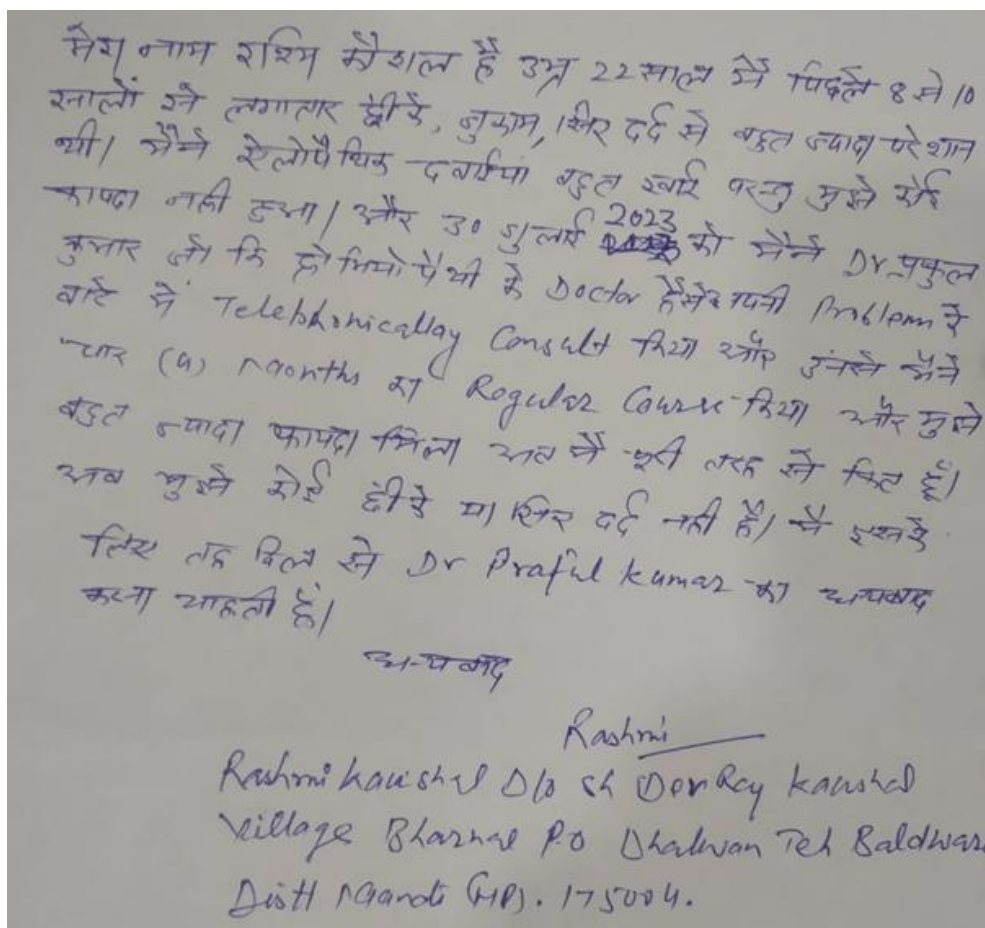 मेरा नाम रश्मि कौशल है उम्र 22 साल मैं पिछले 8 से 10
सालों से लगातार छींके, जुकाम, सिर दर्द से बहुत ज्यादा परेशान
थी। मैंने ऐलोपैथिक दवाईयां बहुत खाई परन्तु मुझे कोई
फायदा नही हुआ। और 30 जुलाई 2023 को मैंने Dr प्रफुल
कुमार जो कि होमियोपैथी के Doctor हैं से अपनी Problem के
बारे में Telebhonicallay Consult किया और उनसे मैंने
चार (4) Months का Regular Course किया और मुझे
बहुत ज्यादा फायदा मिला अब मैं पूरी तरह से फिट हूँ।
अब मुझे कोई छींके या सिर दर्द नही है। मैं इसके
लिए तह दिल से Dr Praful Kumar का धन्यवाद
करना चाहती हूं।
धन्यवाद
Rashmi
Rashmi Kaushal D/o Sh Dev Ray Kaushal
Village Bharnal P.O Dhalwan Teh Baldwara
Distt Mandi (HP). 175004.